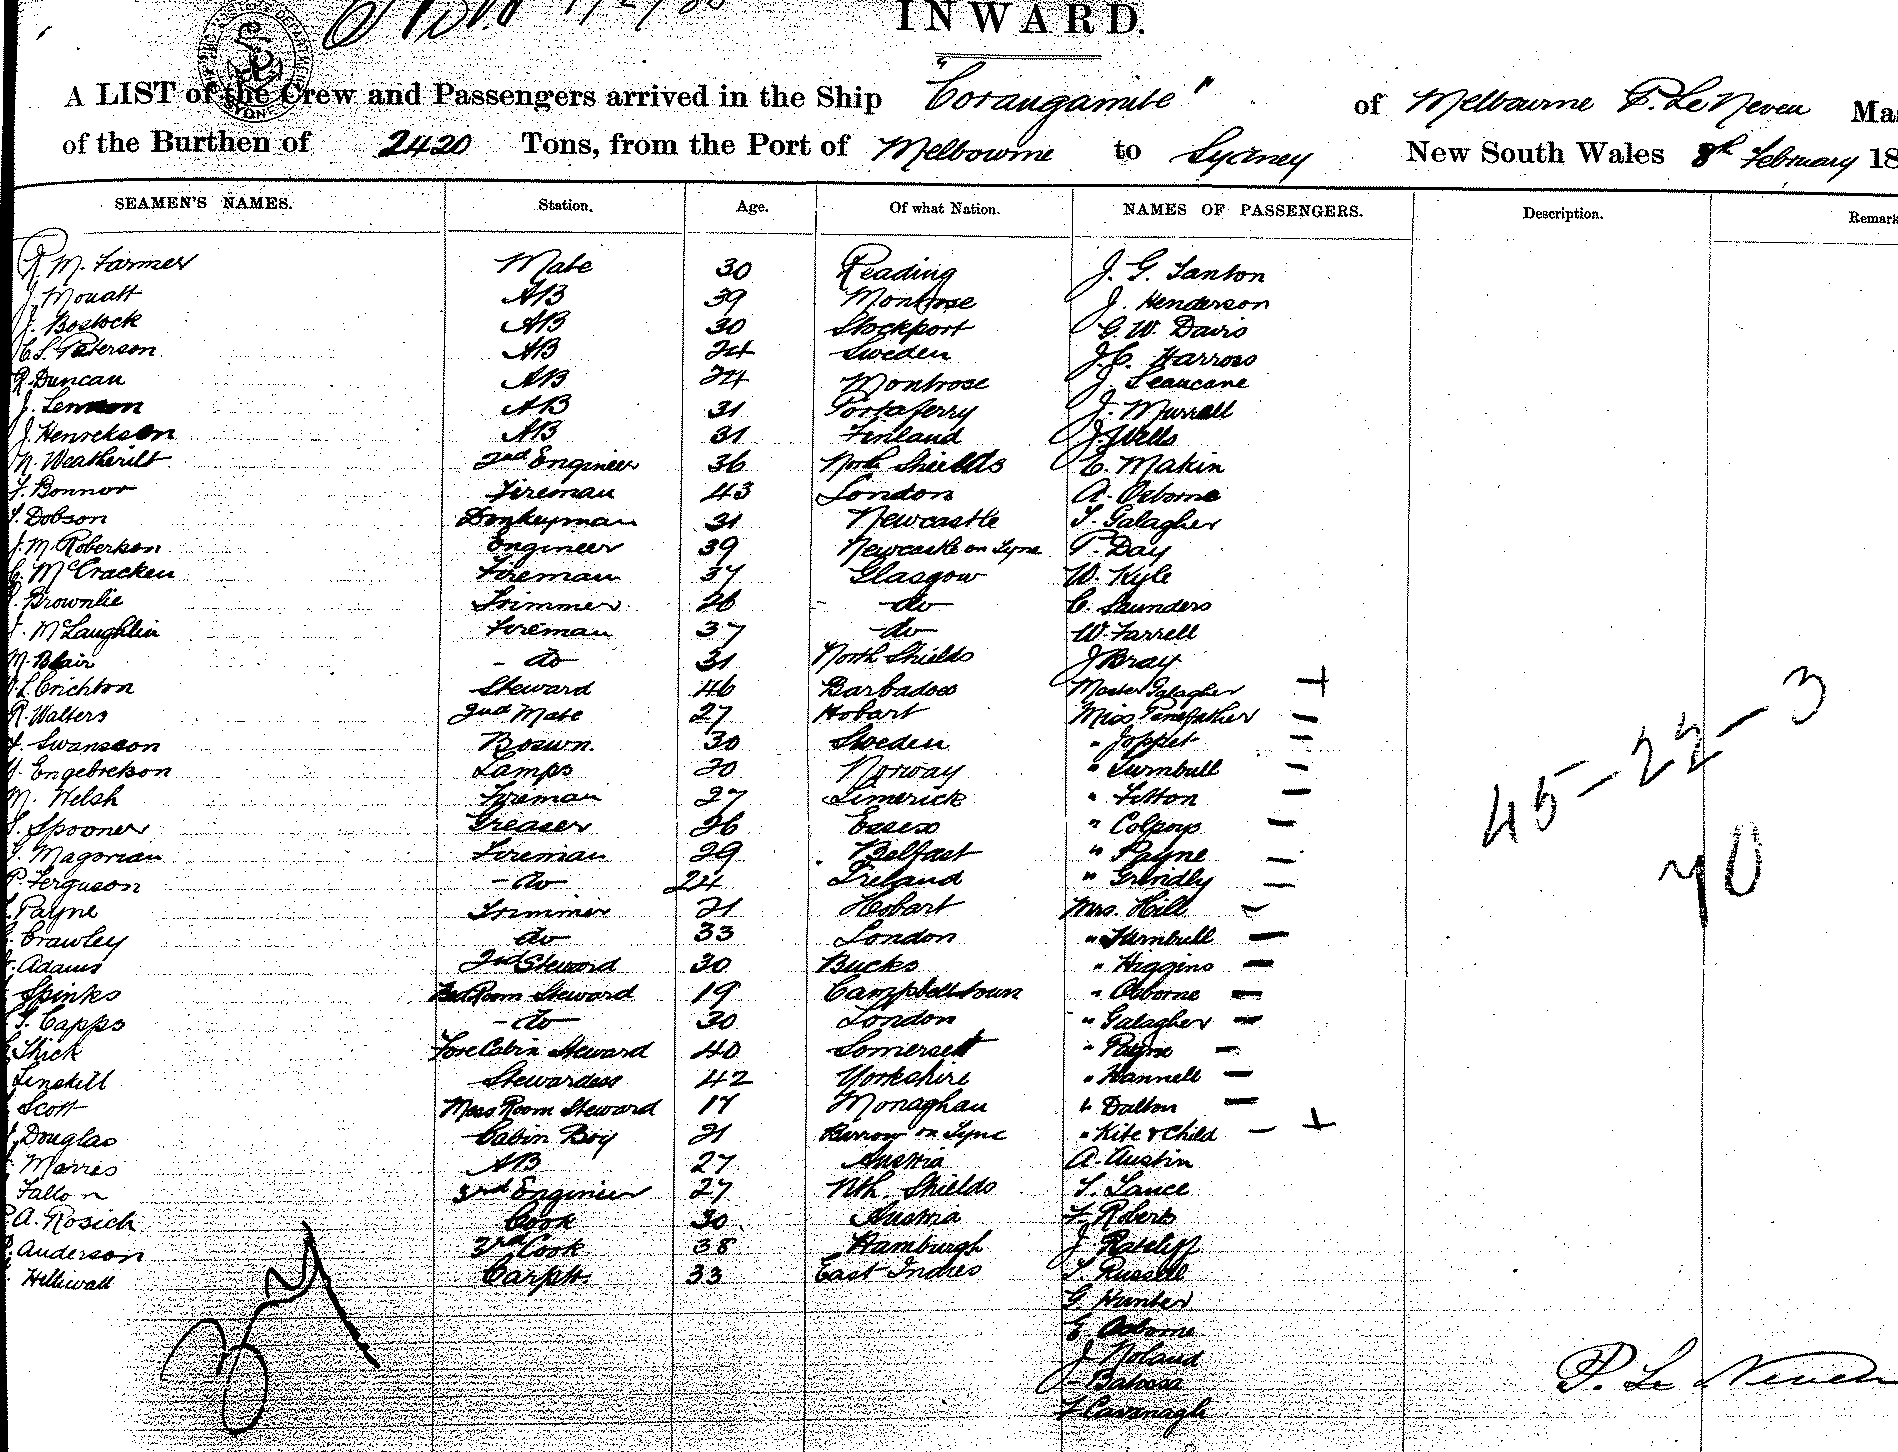 INWARD.
A LIST of the Crew and Passengers arrived in the Ship "Corangamite" of Melbourne P. Le Neveu
of the Burthen of 2420 Tons, from the Port of Melbourne to Sydney New South Wales 8th February 18
SEAMEN'S NAMES. Station. Age. Of what Nation. NAMES OF PASSENGERS. Description. Remark
R M. Farmer Mate 30 Reading J. G. Lanton
J. Mouatt AB 39 Montrose J. Henderson
J. Bostock AB 30 Stockport G. W. Davis
C S. Paterson AB 24 Sweden J. C. Harross
R. Duncan AB 24 Montrose J. Leaucane
J. Lennon AB 31 Portaferry J. Murrall
J. Henrekson AB 31 Finland J. Wells
N. Weatherilt 2nd Engineer 36 North Shields E. Makin
F. Bonnor Fireman 43 London A. Osborne
T. Dobson Donkeyman 31 Newcastle T. Galagher
J. M. Robertson Engineer 39 Newcastle on Tyne P. Day
C. McCracken Fireman 37 Glasgow W. Kyle
Brownlie Trimmer 26 - do C. Saunders
J. McLaughlin Fireman 37 - do W. Farrell
M. Blair - do 31 North Shields J Bray
L. Crichton Steward 46 Barbados Master Galagher +
R. Walters 2nd Mate 27 Hobart Miss Penefather -
Swansson Boswn. 30 Sweden " Joppet -
Engebretson Lamps 20 Norway " Turnbull -
M. Welsh Fireman 27 Limerick " Fitton -
Spooner Greaser 26 Essex " Colpoys -
Magorian Fireman 29 Belfast " Payne -
P. Ferguson - do 24 Ireland " Grindly -
Payne Trimmer 21 Hobart Mrs. Hill -
Crawley do 33 London " Turnbull -
Adams 2nd Steward 30 Bucks " Higgins -
Spinks Bed Room Steward 19 Campbelltown " Osborne -
G. Capps - do 30 London " Galagher -
Thick Fore Cabin Steward 40 Somersett " Payne -
Linskill Stewardess 42 Yorkshire " Hannell -
Scott Mess Room Steward 17 Monaghan " Dalton -
Douglas Cabin Boy 21 Barrow on Tyne " Kite & Child - +
Morris AB 27 Austria A. Austin
Fallon 3rd Engineer 27 Nth. Shields T. Lance
A. Rosich Cook 30 Austria F. Roberts
Anderson 3rd Cook 38 Hamburgh J Ratcliff
Helliwall Carptr. 33 East Indies T. Russell
G. Hunter
E. Osborne
J Noland
Cavanagh
45 - 22 - 3
70
P. Le Neveu